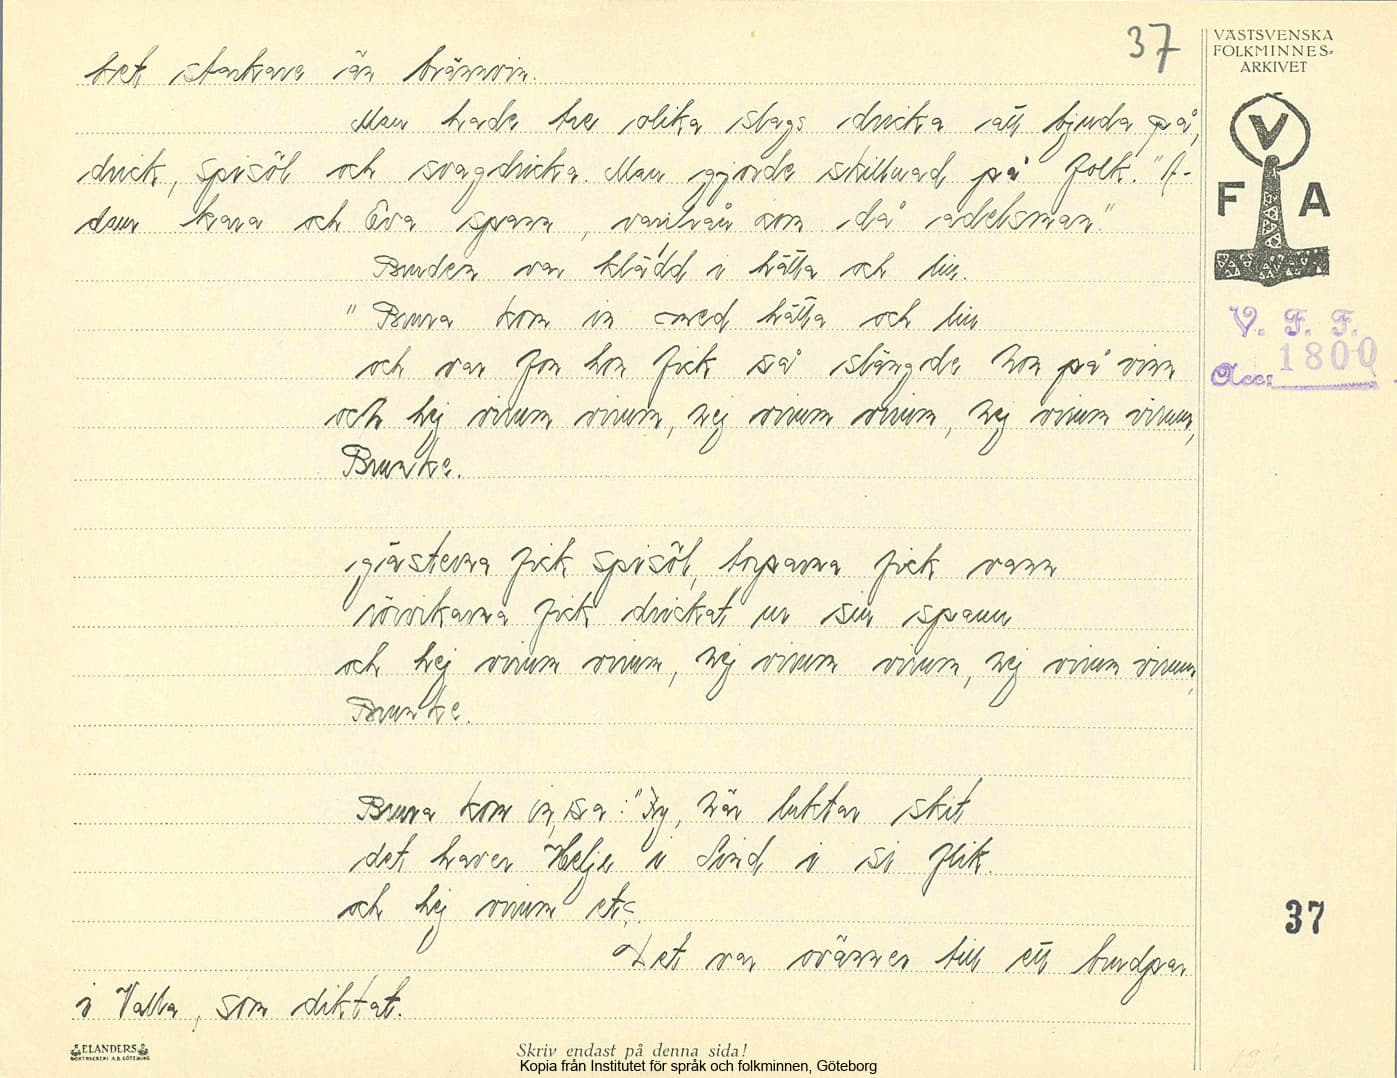 37
VÄSTSVENSKA
FOLKMINNES-
ARKIVET
V
F A
V. F. F.
Acc: 1800
det starkare än brännvin.
Man hade tre olika slags dricka att bjuda på,
drick, spisöl och svagdricka. Man gjorde skillnad på folk. "A-
dam grava och Eva spann, varifrån kom då adelsman"
Bruden var klädd i hätta och lin.
"Brura kom in med hätta och lin
och var fon hon fick så slängde hon på vinn
och hej virum virum, hej virum virum, hej virum virum,
Brunke.
gästerna fick spisöl, torparna fick vann
rövikarna fick drickat ur sin spann
och hej virum virum, hej virum virum, hej virum virum,
Brunke.
Brura kom in, sa: "Fy, här luktar skit
det haver Helje i Lind i si flik.
och hej virum etc.
Det var ovänner till ett brudpar
i Valla, som diktat.
37
ELANDERS
BOKTRYCKERI A.B. GÖTEBORG
Skriv endast på denna sida!
Kopia från Institutet för språk och folkminnen, Göteborg